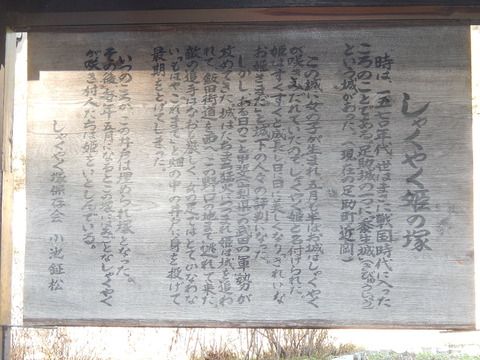 しゃくやく姫の塚
時は一五七〇年代、世はまさに戦国時代に入った
ころのことである。足助城の一つに
という城があった。(現在の足助町近岡)
この城に女の子が生まれ、五月な半ばお城はしゃくやく
が咲きみだれていたのでしゃくやく姫と名付けられた。
姫はすくすくと成長し、日一日と美しくなりきれいな
お姫さまだと城下の人々の評判になった。
しかし、ある日のこと甲斐の武田の軍勢が
攻めてきた。城はたちまち猛火につつまれ、姫は城を追われ
れて、飯田街道を西へ、この野口の地まで逃れて来た。
敵の追手はなおも厳しく、女の足ではとてい
いもはやこれまでと畑の中の井戸に身を投げて
最期をとげてしまった。
いつのころか、この井戸は埋められ塚となった。
その後、毎年五月になるとこの塚に美ごとなしゃくやく
が咲き村人たちは姫をいとしんでいる。
しゃくやく塚保存会 小池鉦松